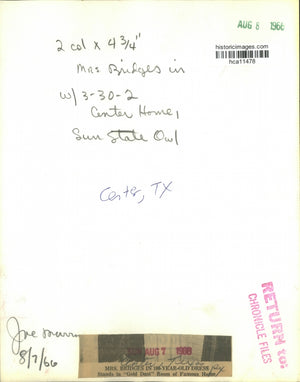 AUG 8 1966
historicimages.com
hca11478
2 col x 4 3/4"
Mrs Bridges in
w/ 3-30-2
Center Home,
Sun State Owl
Center, TX
RETURN TO:
CHRONICLE FILES
Joe
8/7/66
AUG 7 1966
MRS. BRIDGES IN 100-YEAR-OLD DRESS
Stands in "Gold Dust" Room of Famous Home